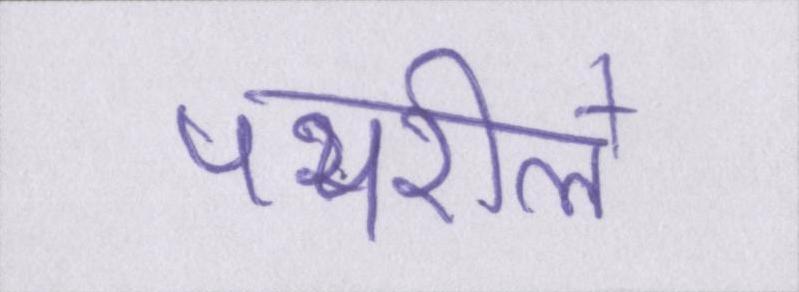 पथरीले